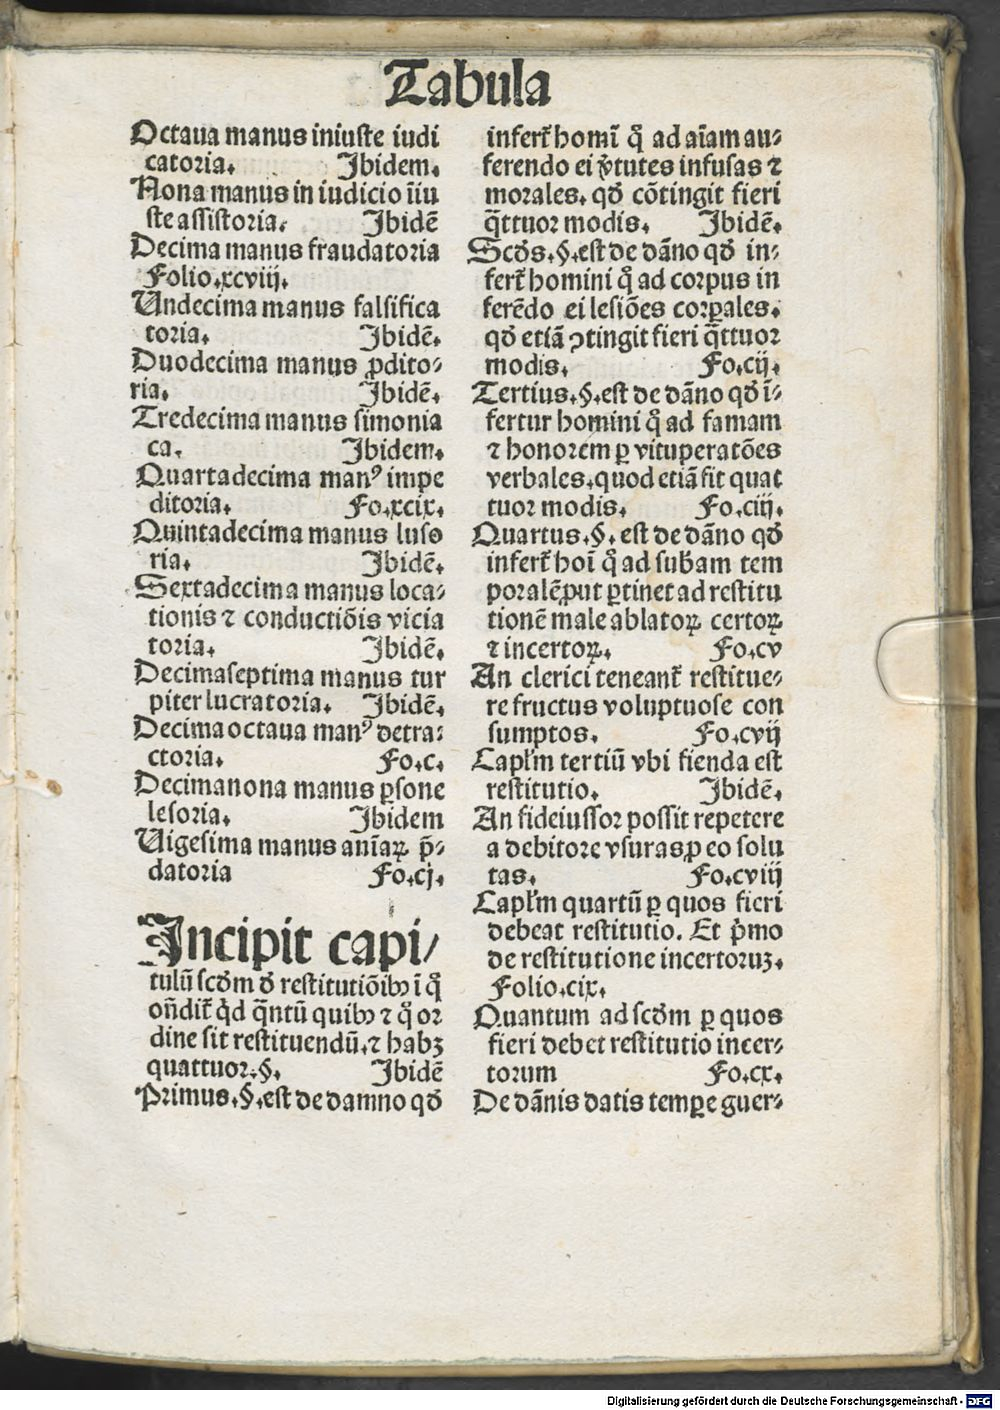 Tabula
Octaua manus iniuste iudi
catoria. Ibidem.
Nona manus in iudicio iiu
ste assistoria. Ibidē
Decima manus fraudatoria
Folio.xcviij.
Undecima manus falsifica
toria. Ibidē.
Duodecima manus ꝓdito⸗
ria. Ibidē.
Tredecima manus simonia
ca. Ibidem.
Quartadecima manꝰ impe
ditoria. Fo.xcix.
Quintadecima manus luso
ria. Ibidē.
Sextadecima manus loca⸗
tionis ⁊ conductiōis vicia
toria. Ibidē.
Decimaseptima manus tur
piter lucratoria. Ibidē.
Decima octaua manꝰ detra⸗
ctoria. Fo.c.
Decimanona manus ꝑsone
lesoria. Ibidem
Uigesima manus aniaꝝ p̄⸗
datoria Fo.cj.
Incipit capi/
tulū scd̄m d̄ restitutiōibꝰ ī q̄
on̄dit᷑ qd̄ q̄ntū quibꝰ ⁊ q̄ or
dine sit restituendū.⁊ habꝫ
quattuor.§. Ibidē
Primus.§.est de damno qd̄
infert᷑ homī q̄ ad aīam au⸗
ferendo ei v̓tutes infusas ⁊
morales. qd̄ cōtingit fieri
q̄ttuor modis. Ibidē.
Scd̄s.§.est de dāno qd̄ in⸗
fert᷑ homini q̄ ad corpus in
ferēdo ei lesiōes corꝑales.
qd̄ etiā ꝯtingit fieri q̄ttuor
modis. Fo.cij.
Tertius.§.est de dāno qd̄ ī⸗
fertur homini q̄ ad famam
⁊ honorem ꝑ vituperatōes
verbales.quod etiā fit quat
tuor modis. Fo.ciij.
Quartus.§.est de dāno qd̄
infert᷑ hoī q̄ ad sub̄am tem
poralē ꝓut ꝑtinet ad restitu
tionē male ablatoꝝ certoꝝ
⁊ incertoꝝ. Fo.cv
An clerici teneant᷑ restitue⸗
re fructus voluptuose con
sumptos. Fo.cvij
Capl̄m tertiū vbi fienda est
restitutio. Ibidē.
An fideiussor possit repetere
a debitore vsuras ꝓ eo solu
tas. Fo.cviij
Capl̄m quartū ꝑ quos fieri
debeat restitutio. Et p̓mo
de restitutione incertoruꝫ.
Folio.cix.
Quantum ad scd̄m ꝑ quos
fieri debet restitutio incer⸗
torum Fo.cx.
De dānis datis temꝑe guer⸗
Digitalisierung gefördert durch die Deutsche Forschungsgemeinschaft - DFG